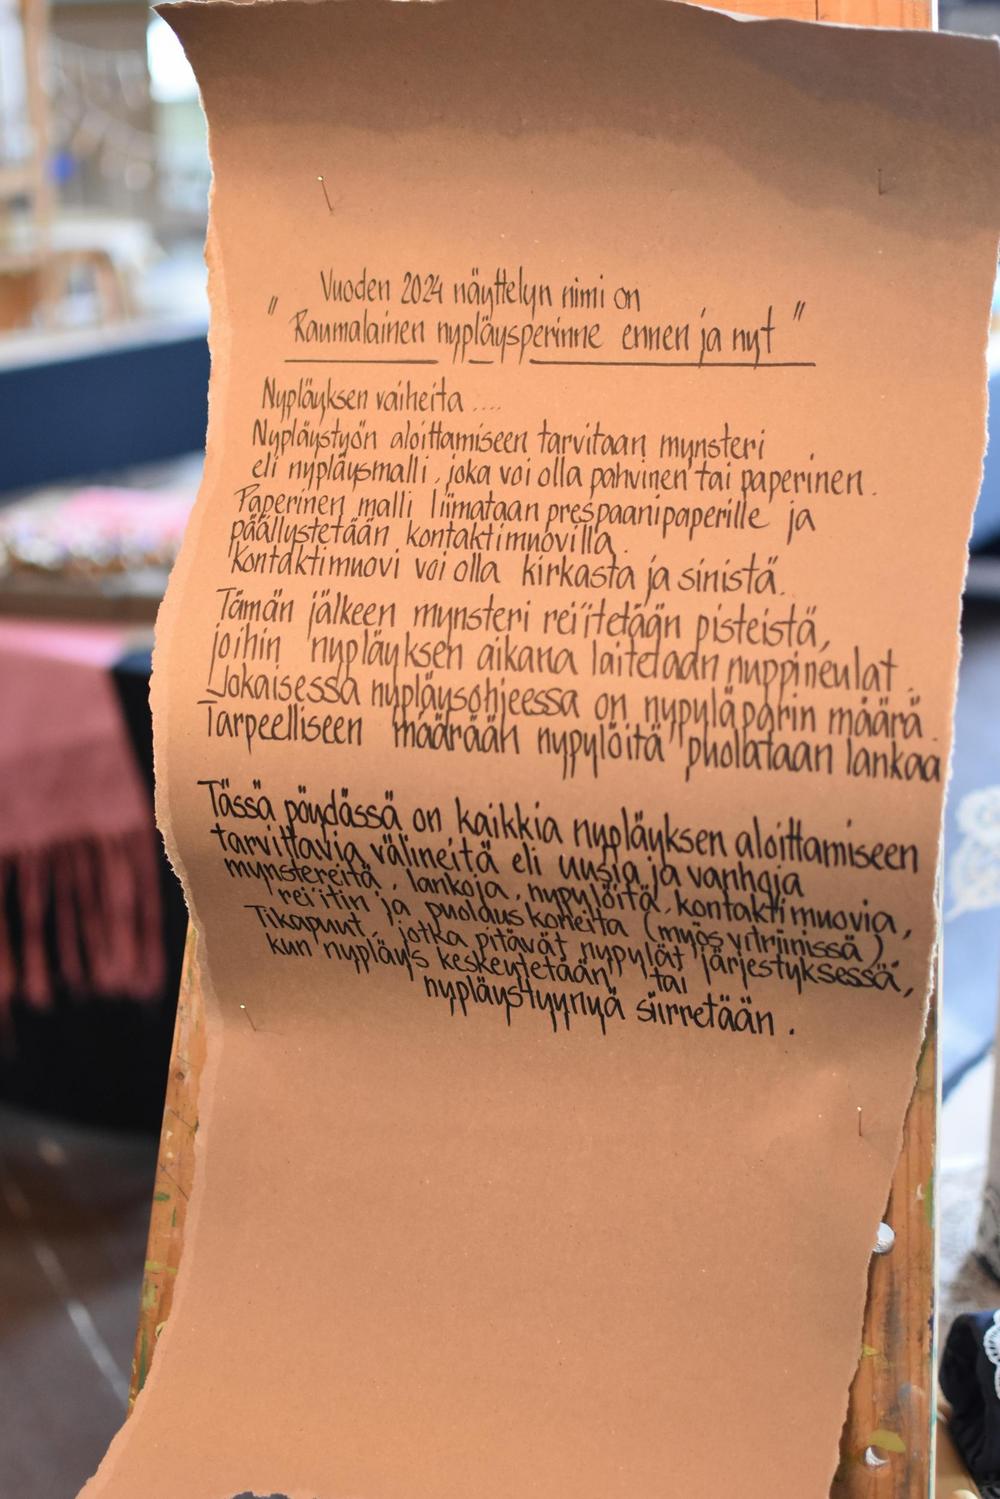 Vuoden 2024 näyttelyn nimi on
" Raumalainen nypläysperinne ennen ja nyt "
Nypläyksen vaiheita ....
Nypläystyön aloittamiseen tarvitaan mynsteri
eli nypläysmalli, joka voi olla pahvinen tai paperinen.
Paperinen malli liimataan prespaanipaperille ja
päällystetään kontaktimuovilla.
Kontaktimuovi voi olla kirkasta ja sinistä.
Tämän jälkeen mynsteri reiitetään pisteistä,
joihin nypläyksen aikana laitetaan nuppineulat.
Jokaisessa nypläysohjeessa on nypyläparin määrä.
Tarpeelliseen määrään nypylöitä puolataan lankaa
Tässä pöydässä on kaikkia nypläyksen aloittamiseen
tarvittavia välineitä eli uusia ja vanhoja
mynstereitä, lankoja, nypylöitä, kontaktimuovia,
rei'itin ja puolauskoneita (myös vitriinissä).
Tikapuut, jotka pitävät nypylät järjestyksessä,
kun nypläys keskeytetään tai
nypläystyynyä siirretään.